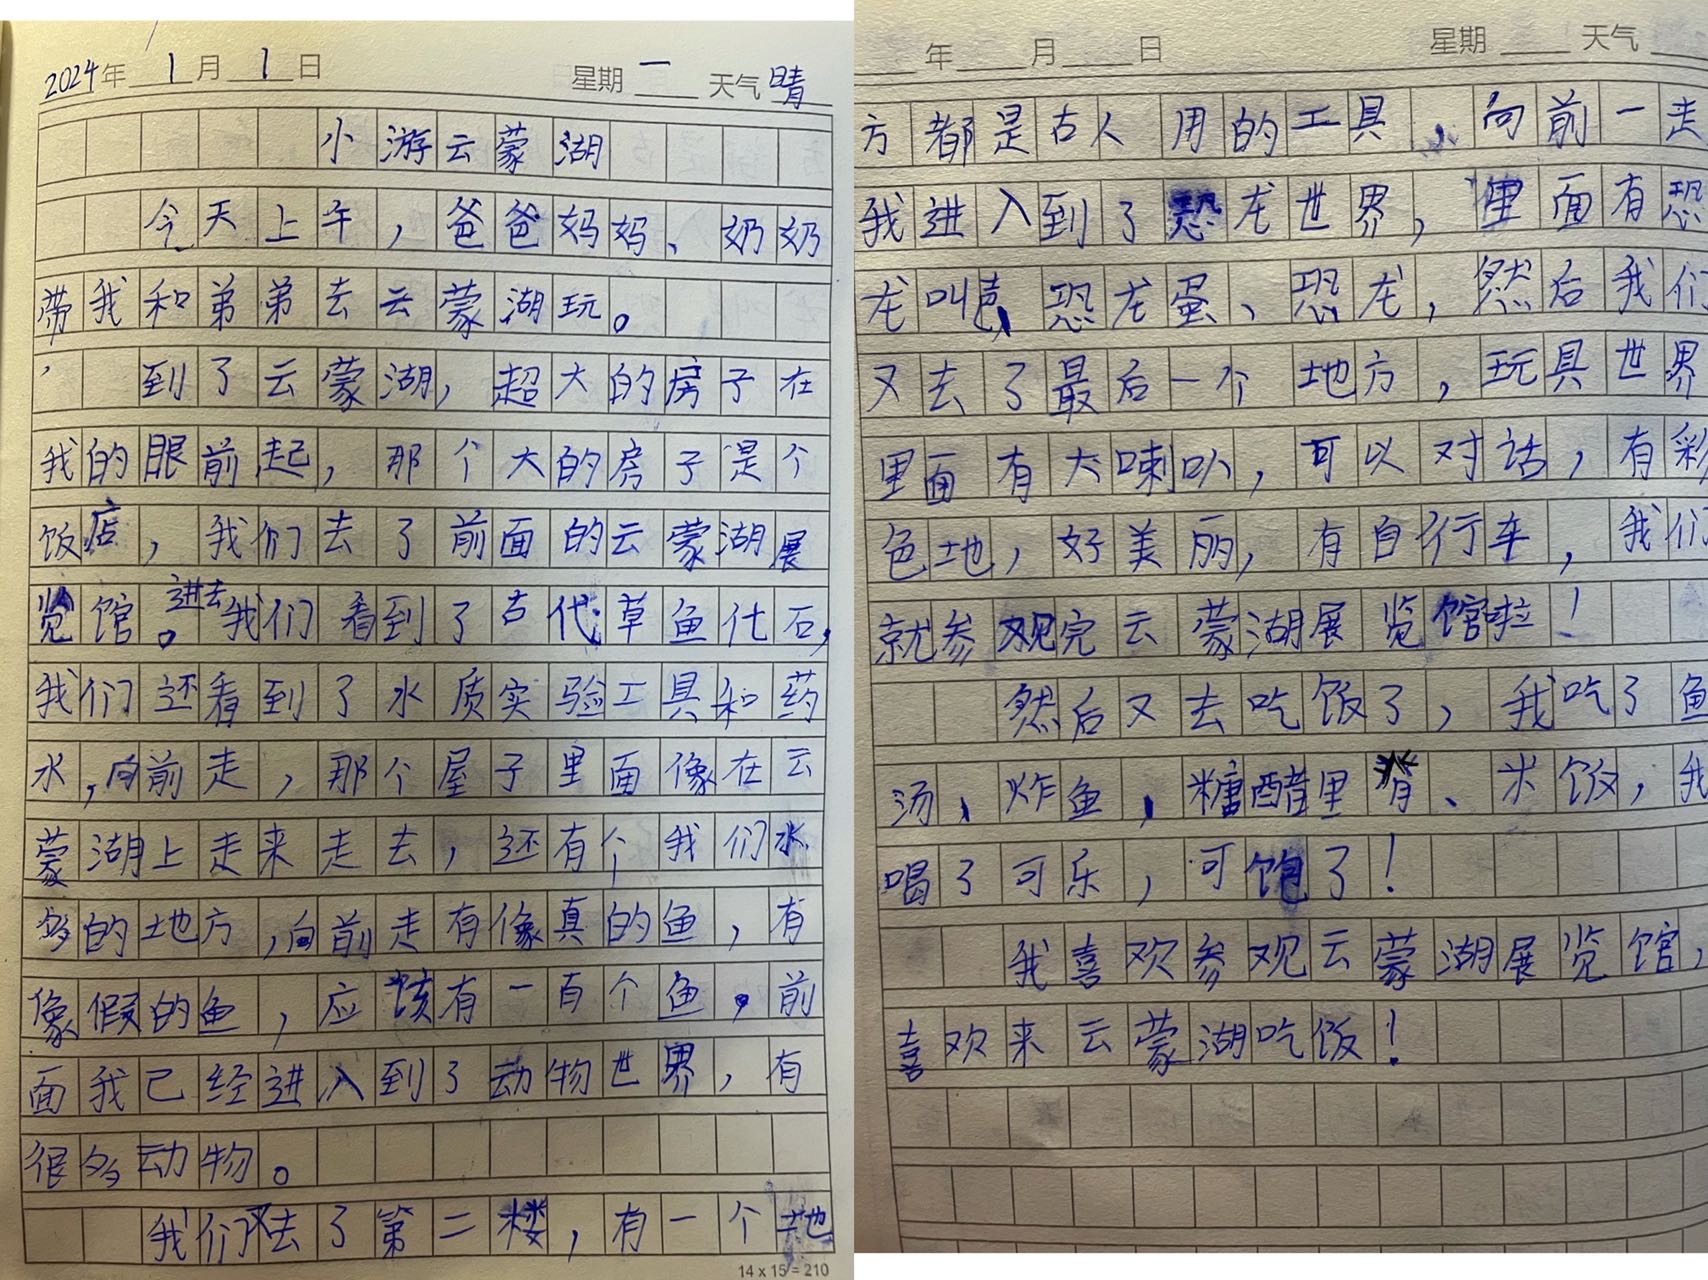 2024年 1月 1日 星期 一 天气 晴
小游云蒙湖
今天上午，爸爸妈妈、奶奶
带我和弟弟去云蒙湖玩。
到了云蒙湖，超大的房子在
我的眼前起，那个大的房子是个
饭店，我们去了前面的云蒙湖展
览馆。进去我们看到了古代草鱼化石，
我们还看到了水质实验工具和药
水，向前走，那个屋子里面像在云
蒙湖上走来走去，还有个我们水
多的地方，向前走有像真的鱼，有
像假的鱼，应该有一百个鱼，前
面我已经进入到了动物世界，有
很多动物。
我们又去了第二楼，有一个地
14×15=210
年 月 日 星期 天气
方都是古人用的工具，向前一走
我进入到了恐龙世界，里面有恐
龙叫声、恐龙蛋、恐龙，然后我们
又去了最后一个地方，玩具世界
里面有大喇叭，可以对话，有彩
色地，好美丽，有自行车，我们
就参观完云蒙湖展览馆啦！
然后又去吃饭了，我吃了鱼
汤、炸鱼，糖醋里脊、米饭，我
喝了可乐，可饱了！
我喜欢参观云蒙湖展览馆，
喜欢来云蒙湖吃饭！